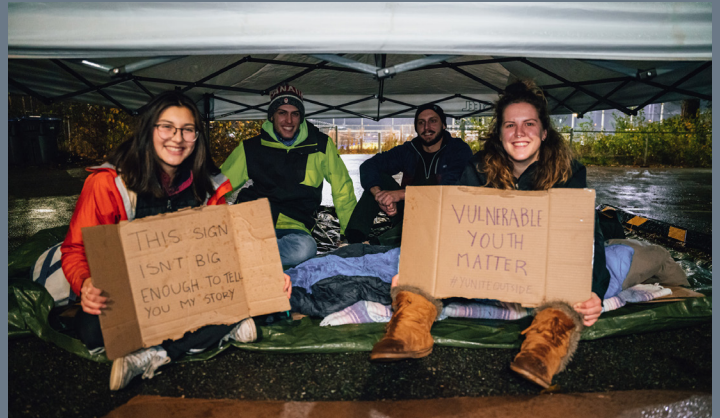 THIS SIGN
ISN'T BIG
ENOUGH TO TELL
YOU MY STORY
VULNERABLE
YOUTH
MATTER